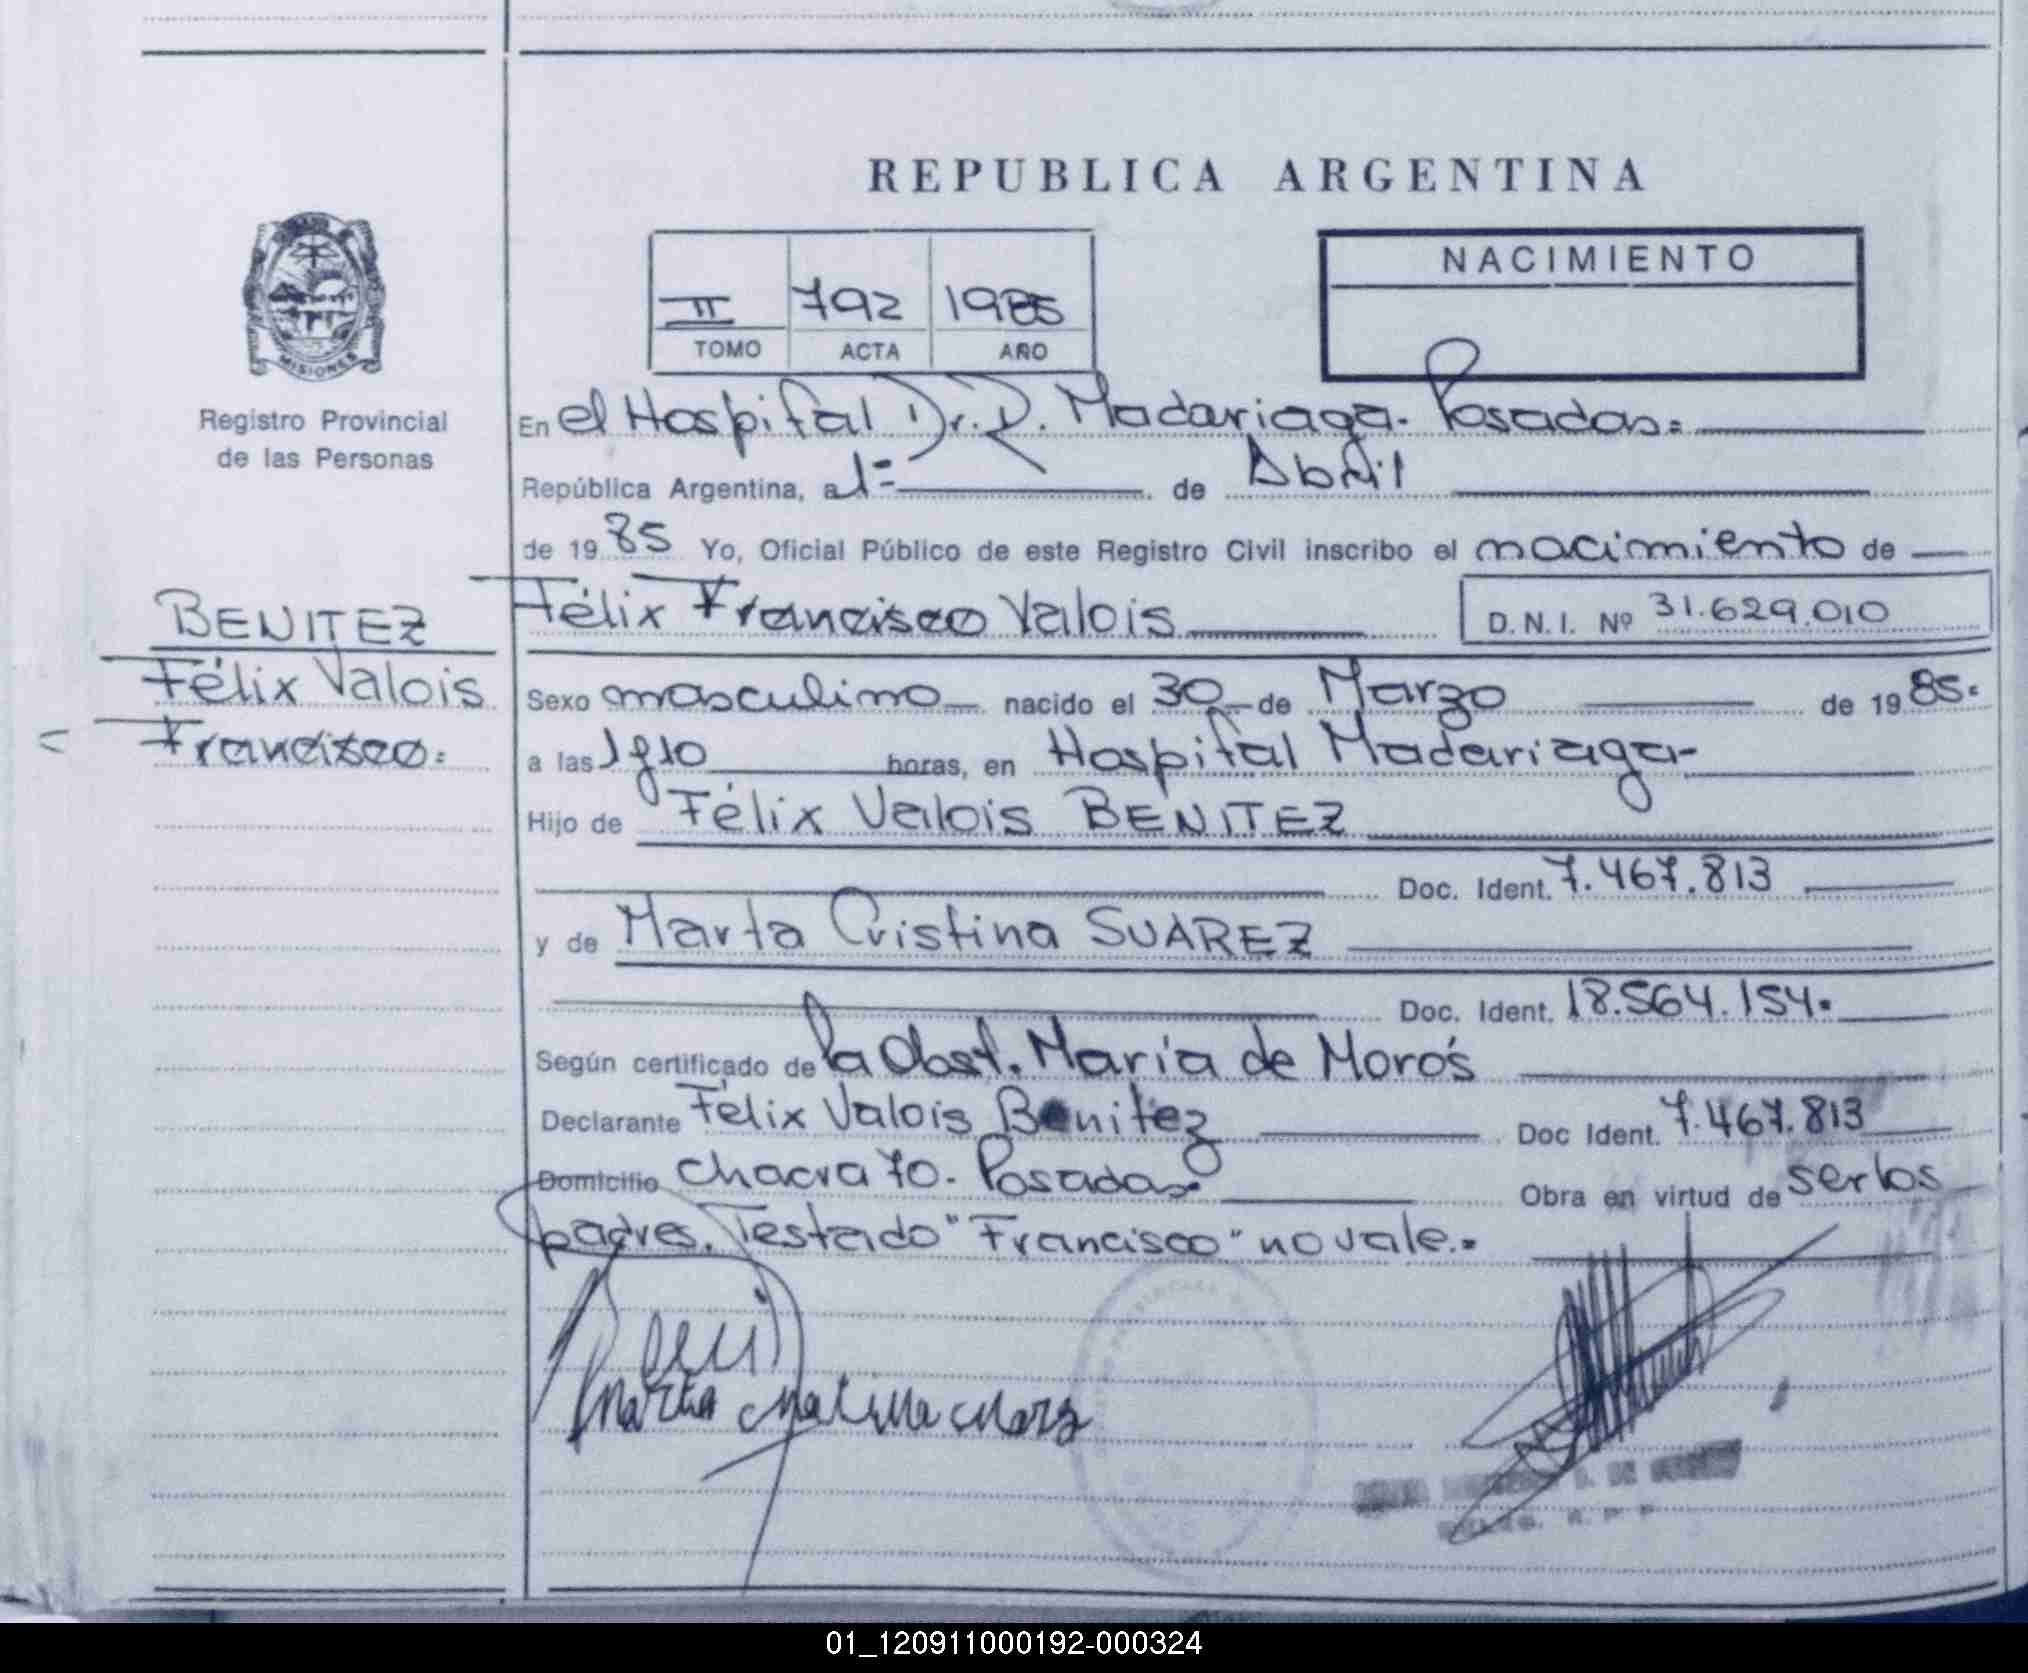 REPUBLICA ARGENTINA
MISIONES
Registro Provincial
de las Personas
II 792 1985
TOMO ACTA AÑO
NACIMIENTO
En el Hospital Dr. R. Madariaga. Posadas=
República Argentina, a 1= de Abril
de 1985 Yo, Oficial Público de este Registro Civil inscribo el nacimiento de
Félix Francisco Valois
D.N.I. Nº 31.629.010
BENITEZ
Félix Valois
Francisco=
Sexo masculino nacido el 30 de Marzo de 1985=
a las horas, en Hospital Madariaga-
Hijo de Félix Valois BENITEZ
Doc. Ident. 7.467.813
y de Marta Cristina SUAREZ
Doc. Ident. 18.564.154=
Según certificado de la Obst. María de Morós
Declarante Félix Valois Benitez Doc Ident. 7.467.813
Domicilio Chacra 70. Posadas Obra en virtud de ser los
padres. Testado "Francisco" no vale.=
01_120911000192-000324